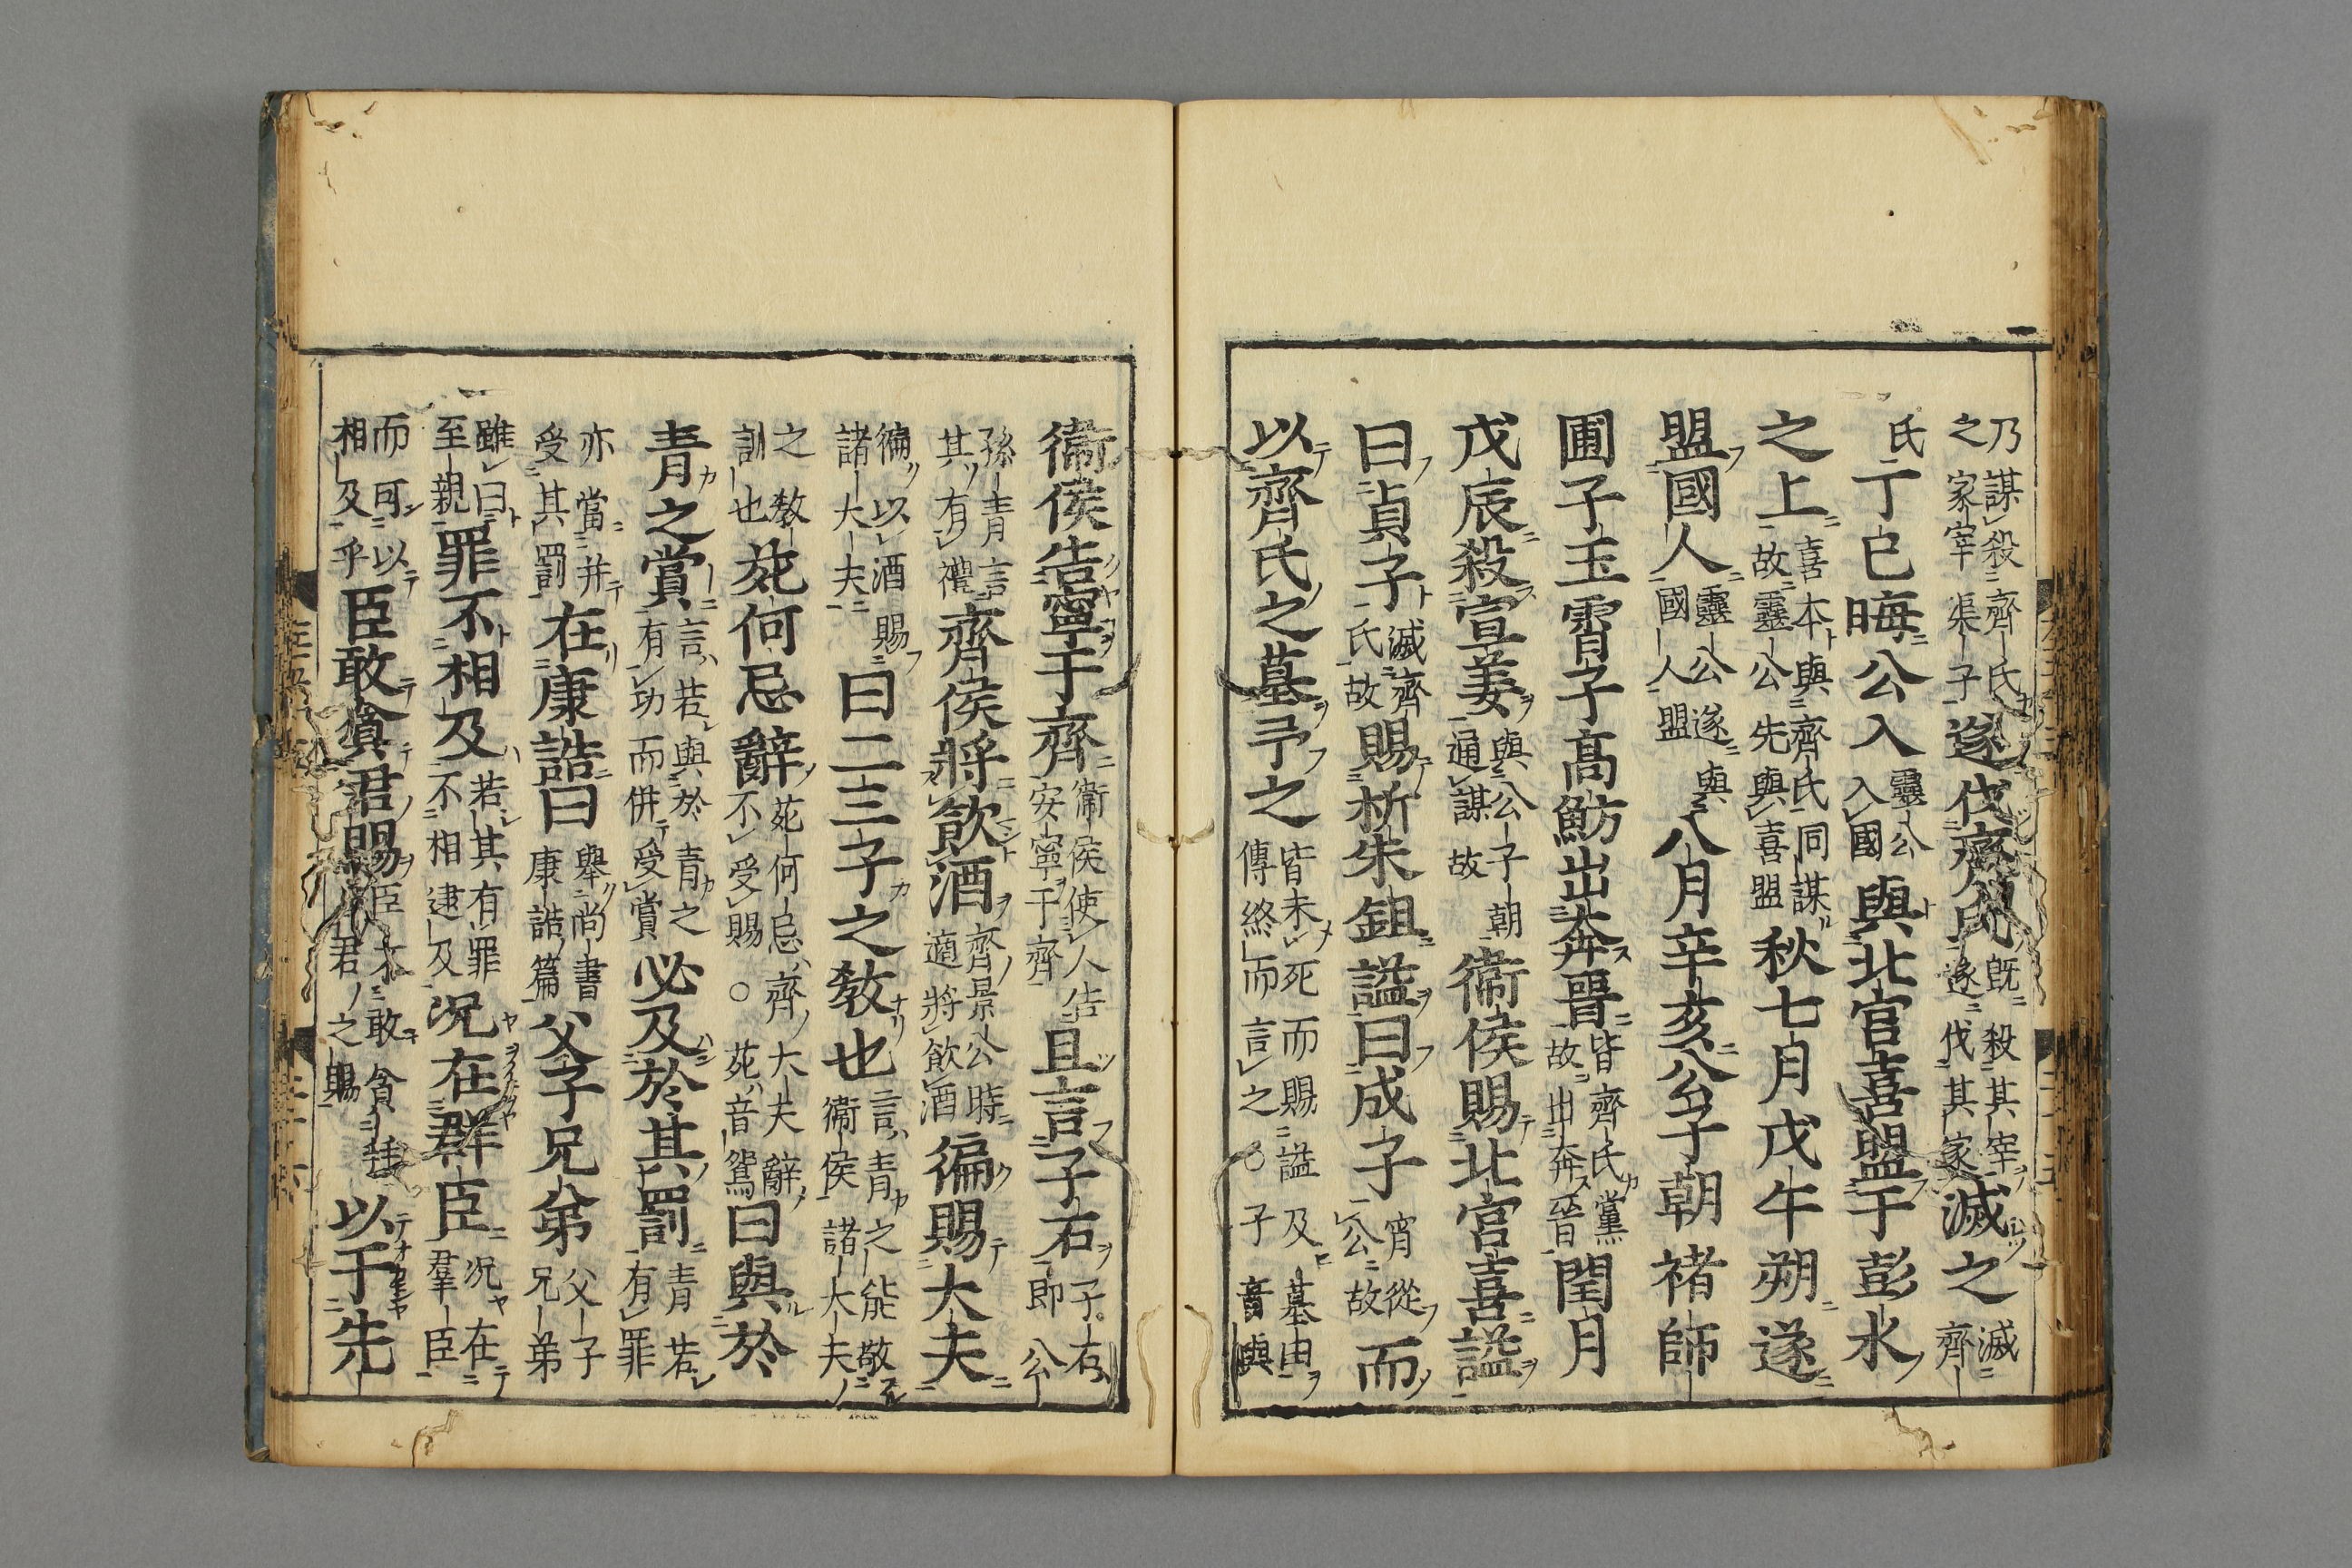 乃謀殺齊氏
之家宰渠子
遂伐齊氏
既殺其宰
遂伐其家
滅之
滅
齊
氏
丁巳晦公入
靈公
入國
與北宮喜盟于彭水
之上
喜本與齊氏同謀
故靈公先與喜盟
秋七月戊午朔遂
盟國人
靈公遂與
國人盟
八月辛亥公子朝褚師
圃子玉霄子高魴出奔晉
皆齊氏黨
故出奔晉
閏月
戊辰殺宣姜
與公子朝
通謀故
衞侯賜北宮喜謚
曰貞子
滅齊
氏故
賜析朱鉏謚曰成子
宵從
公故
而
以齊氏之墓予之
皆未死而賜謚及墓田
傳終而言之○子音與
衞侯告寧于齊
衞侯使人告
安寧于齊
且言子石
子石
即公
孫青言
其有禮
齊侯將飲酒
齊景公時
適將飲酒
徧賜大夫
徧以酒賜
諸大夫
曰二三子之敎也
言青之能敬
衞侯諸大夫
之敎
訓也
苑何忌辭
苑何忌齊大夫辭
不受賜○苑音鴛
曰與於
青之賞
言若與於青之
有功而併受賞
必及於其罰
青若
有罪
亦當并
受其罰
在康誥曰
舉尚書
康誥篇
父子兄弟
父子
兄弟
雖曰
至親
罪不相及
若其有罪
不相逮及
況在群臣
況在
羣臣
而可以
相及乎
臣敢貪君賜
臣不敢貪
君之賜
以干先